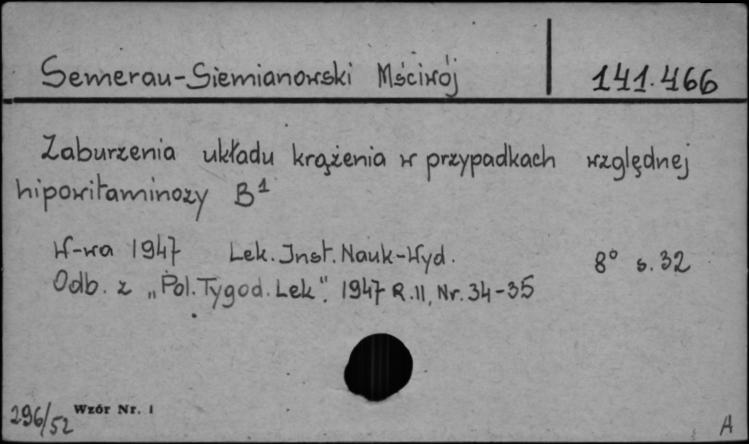 Semerau-Siemianowski Mściwój 141.466
Zaburzenia układu krążenia w przypadkach względnej
hipowitaminozy B1
W-wa 1947 Lek. Inst. Nauk-Wyd. 8° s. 32
Odb. z „Pol. Tygod. Lek". 1947 R. II, Nr. 34-35
296/52 Wzór Nr. 1 A